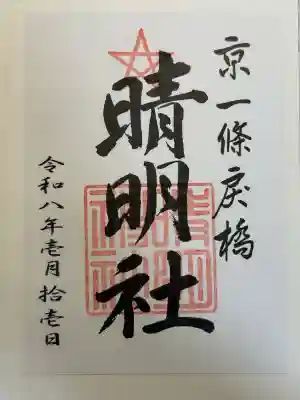 京一條戻橋
晴明社
令和八年壱月拾壱日